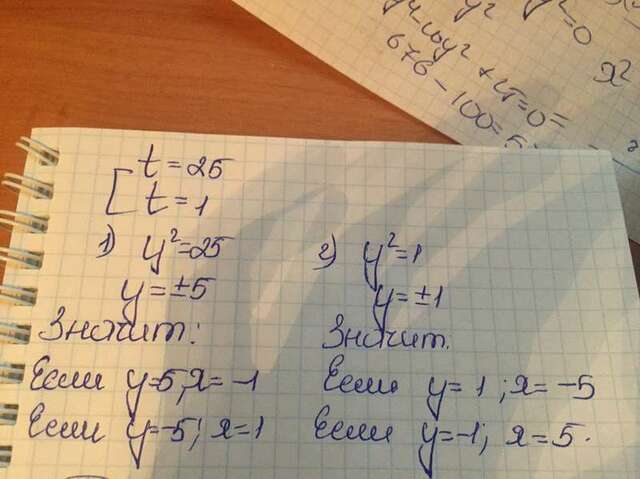 676 - 100 = 5
x²
[ t = 25
t = 1
1) y² = 25
y = ±5
Значит:
Если y=5, x= -1
Если y=-5; x=1
2) y² = 1
y = ±1
Значит:
Если y= 1 ; x= -5
Если y=-1; x=5.